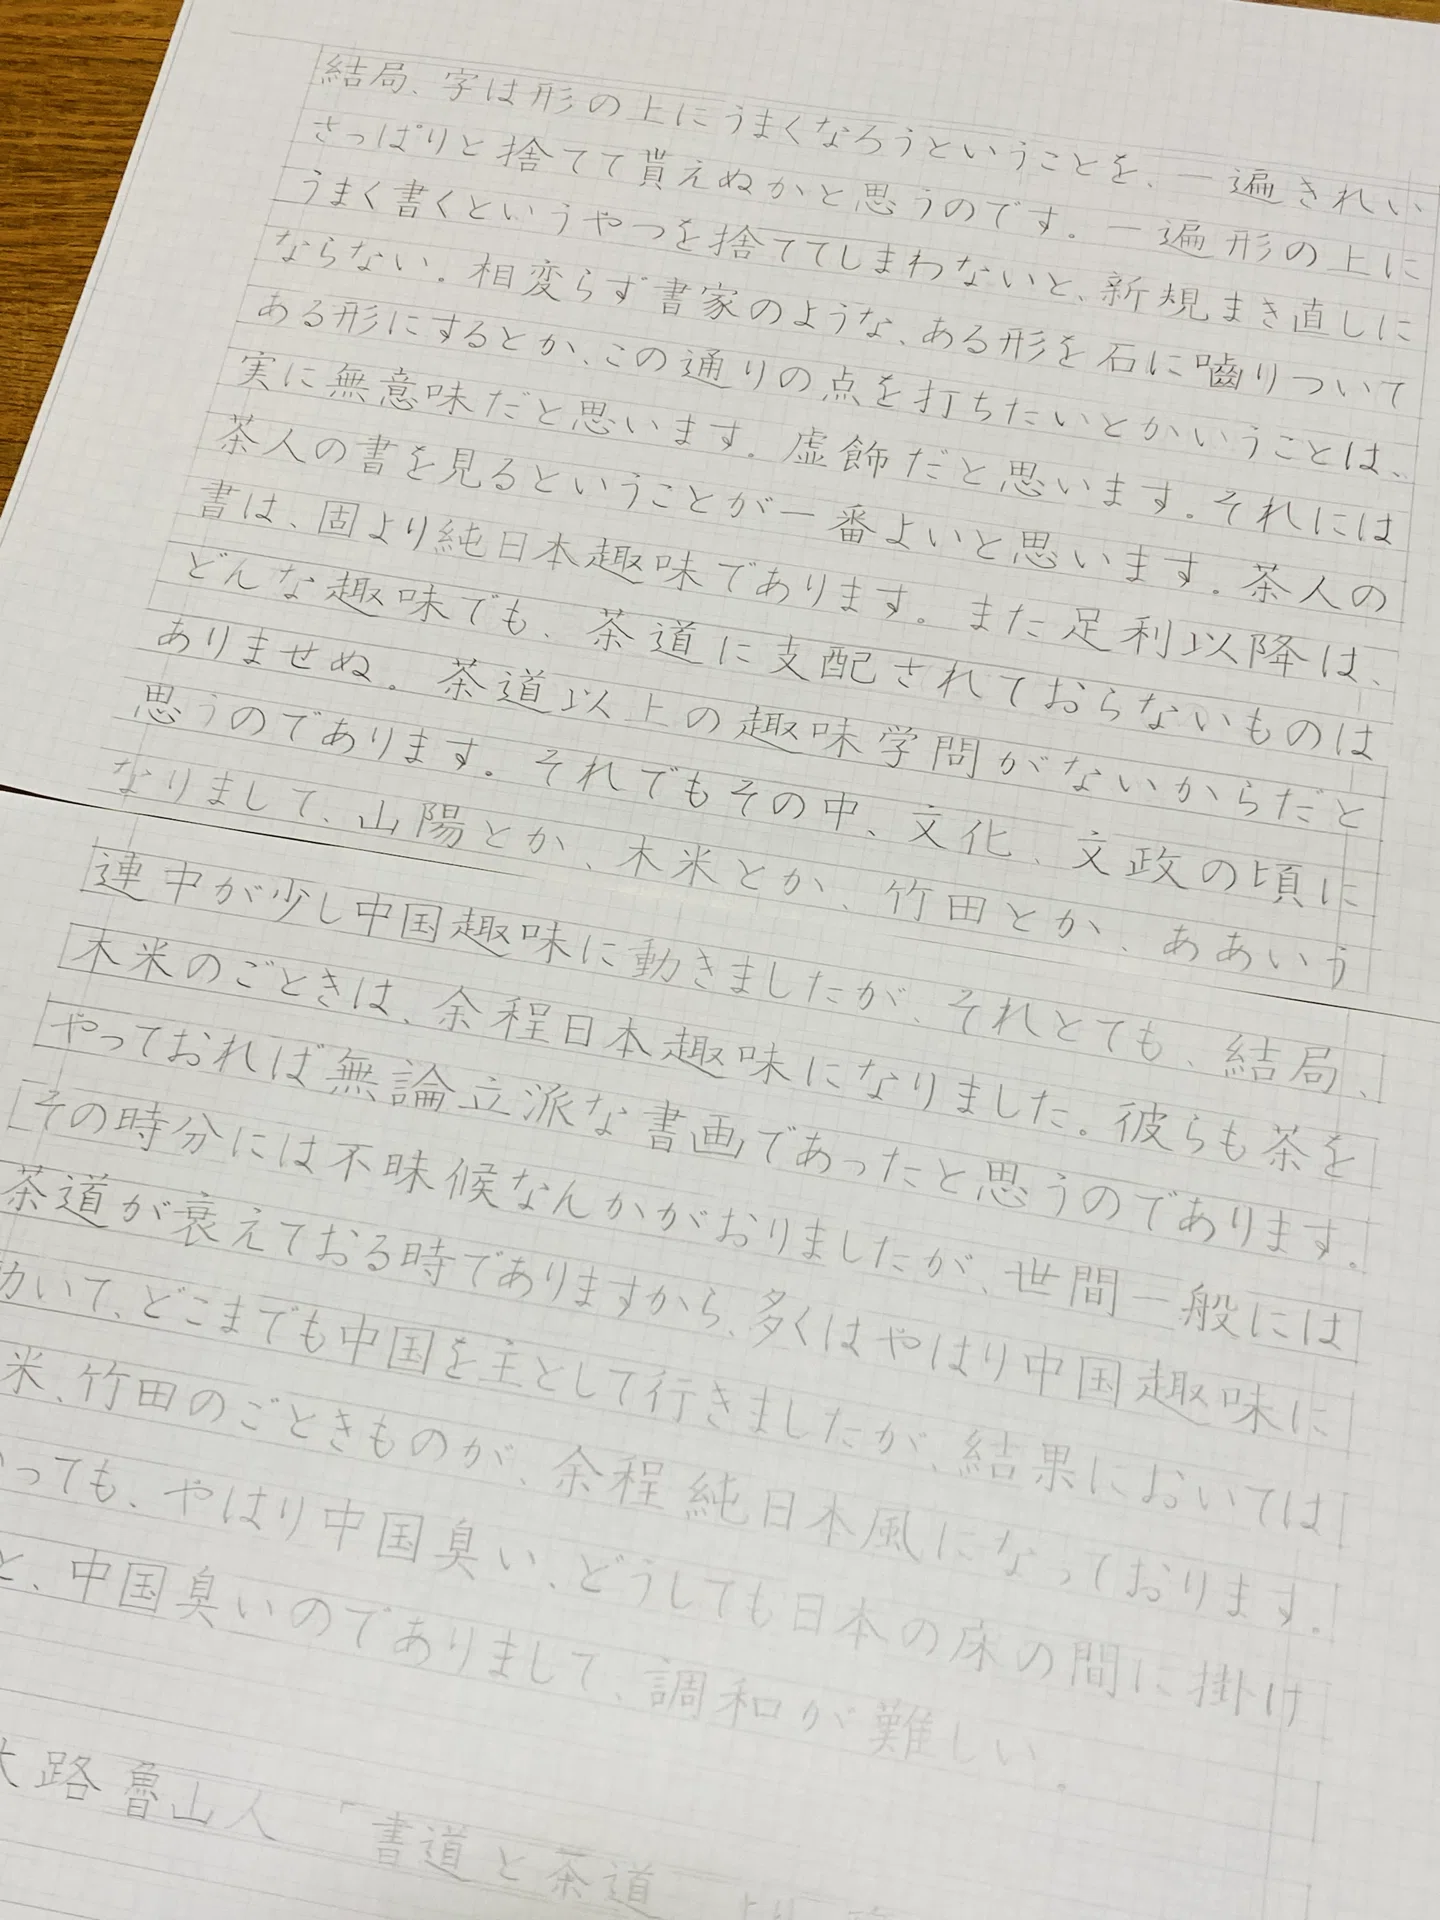 結局、字は形の上にうまくなろうということを、一遍きれい
さっぱりと捨てて貰えぬかと思うのです。一遍形の上に
うまく書くというやつを捨ててしまわないと、新規まき直しに
ならない。相変らず書家のような、ある形を石に嚙りついて
ある形にするとか、この通りの点を打ちたいとかいうことは、
実に無意味だと思います。虚飾だと思います。それには
茶人の書を見るということが一番よいと思います。茶人の
書は、固より純日本趣味であります。また足利以降は、
どんな趣味でも、茶道に支配されておらないものは
ありませぬ。茶道以上の趣味学問がないからだと
思うのであります。それでもその中、文化、文政の頃に
なりまして、山陽とか、木米とか、竹田とか、ああいう
連中が少し中国趣味に動きましたが、それとても、結局、
木米のごときは、余程日本趣味になりました。彼らも茶を
やっておれば無論立派な書画であったと思うのであります。
その時分には不昧候なんかがおりましたが、世間一般には
茶道が衰えておる時でありますから、多くはやはり中国趣味に
動いて、どこまでも中国を主として行きましたが、結果においては
米、竹田のごときものが、余程純日本風になっております。
っても、やはり中国臭い、どうしても日本の床の間に掛け
と、中国臭いのでありまして、調和が難しい。
大路魯山人 「書道と茶道